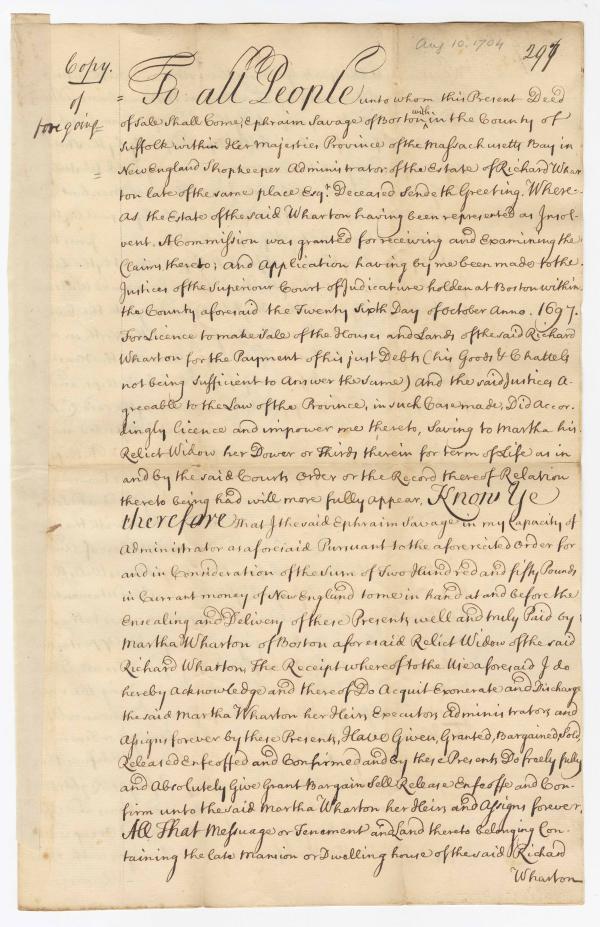 Aug 10. 1704
297
Copy.
of
foregoing
= To all People unto whom this Present Deed
of Sale Shall Come, Ephraim Savage of Boston within in the County of
Suffolk within Her Majesties Province of the Massachusetts Bay in
New England Shopkeeper Administrator of the Estate of Richard Whar-
ton late of the same place Esqr. Deceased Sendeth Greeting. Where-
As the Estate of the said Wharton having been represented as Insol-
vent. A Commission was granted for receiving and Examining the
Claims thereto; and Application having by me been made to the
Justices of the Superiour Court of Judicature holden at Boston within
the County aforesaid the Twenty Sixth Day of October Anno. 1697.
For Licence to make Sale of the Houses and Lands of the said Richard
Wharton for the Payment of his just Debts (his Goods & Chattels
not being Sufficient to Answer the same) And the said Justices A-
greeable to the Law of the Province, in such Case made, Did Accor-
dingly licence and impower me thereto, Saving to Martha his
Relict Widow her Dower or Thirds therein for term of Life as in
and by the said Courts Order or the Record thereof Relation
thereto being had will more fully appear. Know Ye
therefore that I the said Ephraim Savage in my Capacity of
Administrator as aforesaid Pursuant to the afore recited Order for
and in Consideration of the Sum of Two Hundred and fifty Pounds
in Currant money of New England to me in hand at and before the
Ensealing and Delivery of these Presents well and truly Paid by
Martha Wharton of Boston aforesaid Relict Widow of the said
Richard Wharton, The Receipt whereof to the Use aforesaid I do
hereby Acknowledge and thereof Do Acquit Exonerate and Discharge
the said Martha Wharton her Heirs Executors Administrators and
Assigns forever by these Presents, Have Given, Granted, Bargained, Sold
Released Enfeoffed and Confirmed and by these Presents Do freely fully
and Absolutely Give Grant Bargain Sell Release Enfeoffe and Con-
firm unto the said Martha Wharton her Heirs and Assigns forever,
All That Messuage or Tenement and Land thereto belonging Con-
taining the late Mansion or Dwelling house of the said Richard
Wharton